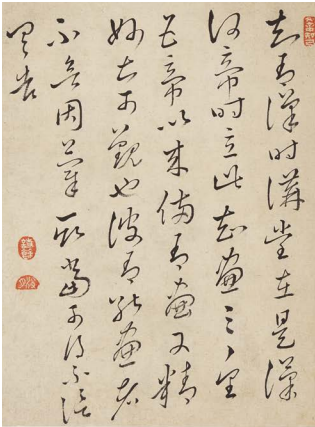 知有漢時講堂在是漢
何帝時立此知畫三皇
五帝以來備有畫又精
妙甚可觀也彼有能畫者
不欲因摹取當可得不信
具告